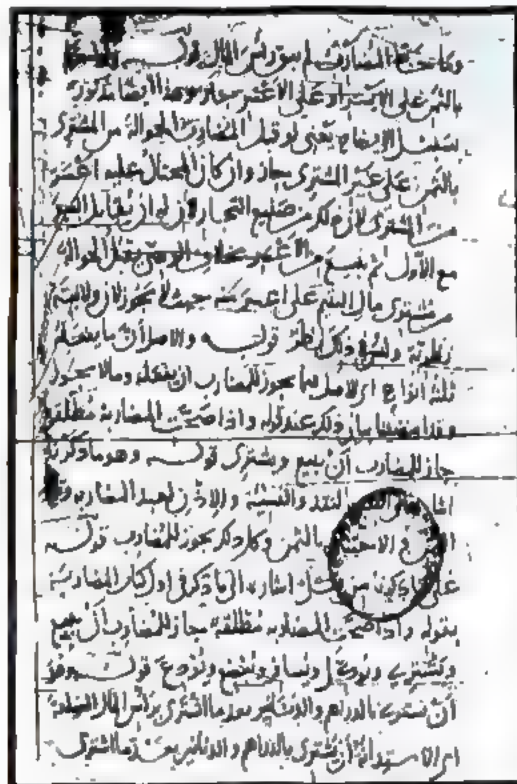 وكانت حصة المضارب لم من رأس المال قوله
بالثمن على الايسر او على الاعسر جاز وهذا ايضا مذكور
يعني لو قبل المضارب الحوالة من المشترى
بالثمن على غير المشترى جاز وان كان المحتال عليه اعسر
من المشترى لان ذلك من صنيع التجار ولان له ان يقابل البيع
مع الاول ثم يبيع من الاعسر بخلاف الوصى يقبل الحوالة
من مشترى مال اليتيم على اعسر منه حيث لا يجوز لان ولايته
نظرية وليس في ذلك نظر قوله والاصل ان ما يفعله
ثلثة انواع اى الاصل فيما يجوز للمضارب ان يفعله وما لا يجوز
وقد ذكر عند قوله واذا صحت المضاربة مطلقة
جاز للمضارب ان يبيع ويشترى قوله وهو ما ذكرنا
اشارة النقد والنسيئة والاذن لعبد المضاربة
الاحتيال بالثمن وكل ذلك يجوز للمضارب قوله
على ما ذكرنا من قبل اشارة الى ما ذكر فى اول كتاب المضاربة
بقوله واذا صحت المضاربة مطلقة جاز للمضارب ان يبيع
ويشترى ويوكل ويسافر ويبضع ويودع قوله وهو
ان يشترى بالدراهم والدنانير بعد ما اشترى برأس المال السلعة
اى الاستدانة ان يشترى بالدراهم والدنانير بعد ما اشترى